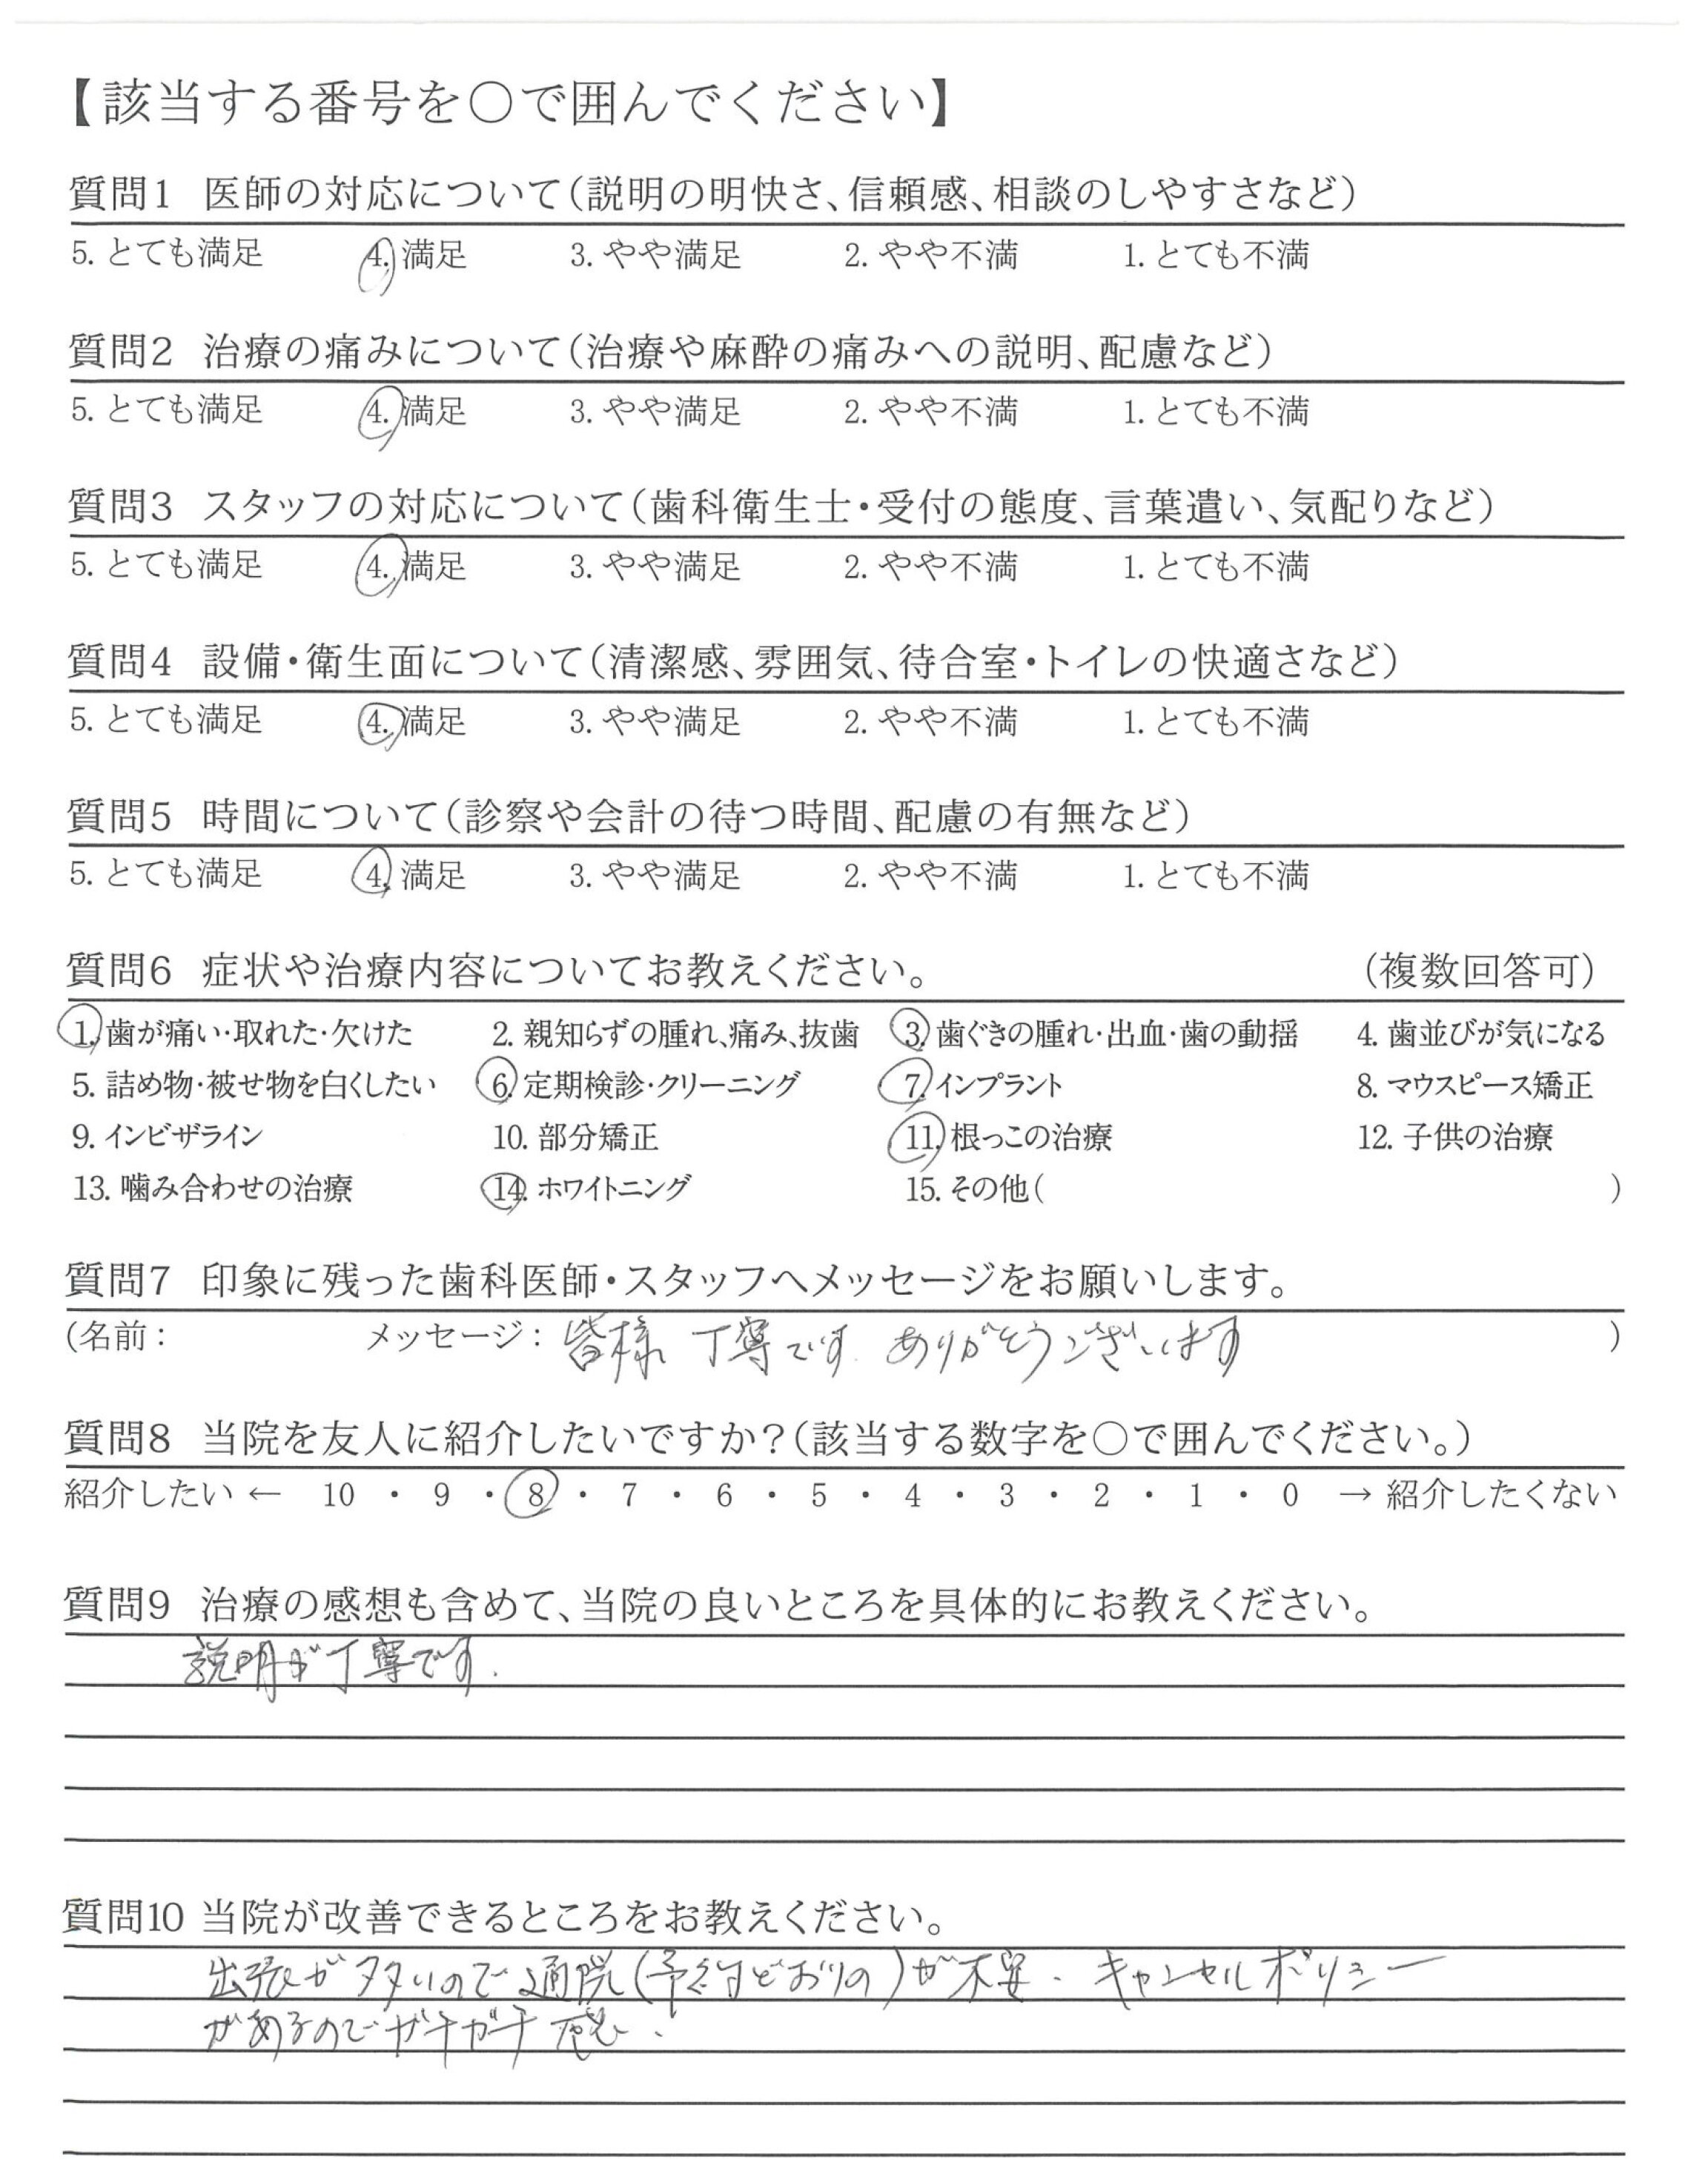 【該当する番号を○で囲んでください】
質問1 医師の対応について(説明の明快さ、信頼感、相談のしやすさなど)
5. とても満足 4. 満足 3. やや満足 2. やや不満 1. とても不満
質問2 治療の痛みについて(治療や麻酔の痛みへの説明、配慮など)
5. とても満足 4. 満足 3. やや満足 2. やや不満 1. とても不満
質問3 スタッフの対応について(歯科衛生士・受付の態度、言葉遣い、気配りなど)
5. とても満足 4. 満足 3. やや満足 2. やや不満 1. とても不満
質問4 設備・衛生面について(清潔感、雰囲気、待合室・トイレの快適さなど)
5. とても満足 4. 満足 3. やや満足 2. やや不満 1. とても不満
質問5 時間について(診察や会計の待つ時間、配慮の有無など)
5. とても満足 4. 満足 3. やや満足 2. やや不満 1. とても不満
質問6 症状や治療内容についてお教えください。 (複数回答可)
1. 歯が痛い・取れた・欠けた 2. 親知らずの腫れ、痛み、抜歯 3. 歯ぐきの腫れ・出血・歯の動揺 4. 歯並びが気になる
5. 詰め物・被せ物を白くしたい 6. 定期検診・クリーニング 7. インプラント 8. マウスピース矯正
9. インビザライン 10. 部分矯正 11. 根っこの治療 12. 子供の治療
13. 噛み合わせの治療 14. ホワイトニング 15. その他( )
質問7 印象に残った歯科医師・スタッフへメッセージをお願いします。
(名前: メッセージ: 皆様 丁寧です. ありがとうございます )
質問8 当院を友人に紹介したいですか?(該当する数字を○で囲んでください。)
紹介したい ← 10 ・ 9 ・ 8 ・ 7 ・ 6 ・ 5 ・ 4 ・ 3 ・ 2 ・ 1 ・ 0 → 紹介したくない
質問9 治療の感想も含めて、当院の良いところを具体的にお教えください。
説明が丁寧です.
質問10 当院が改善できるところをお教えください。
出張が多いので通院(予約どおりの)が不安. キャンセルポリシー
があるのでガチガチ感.